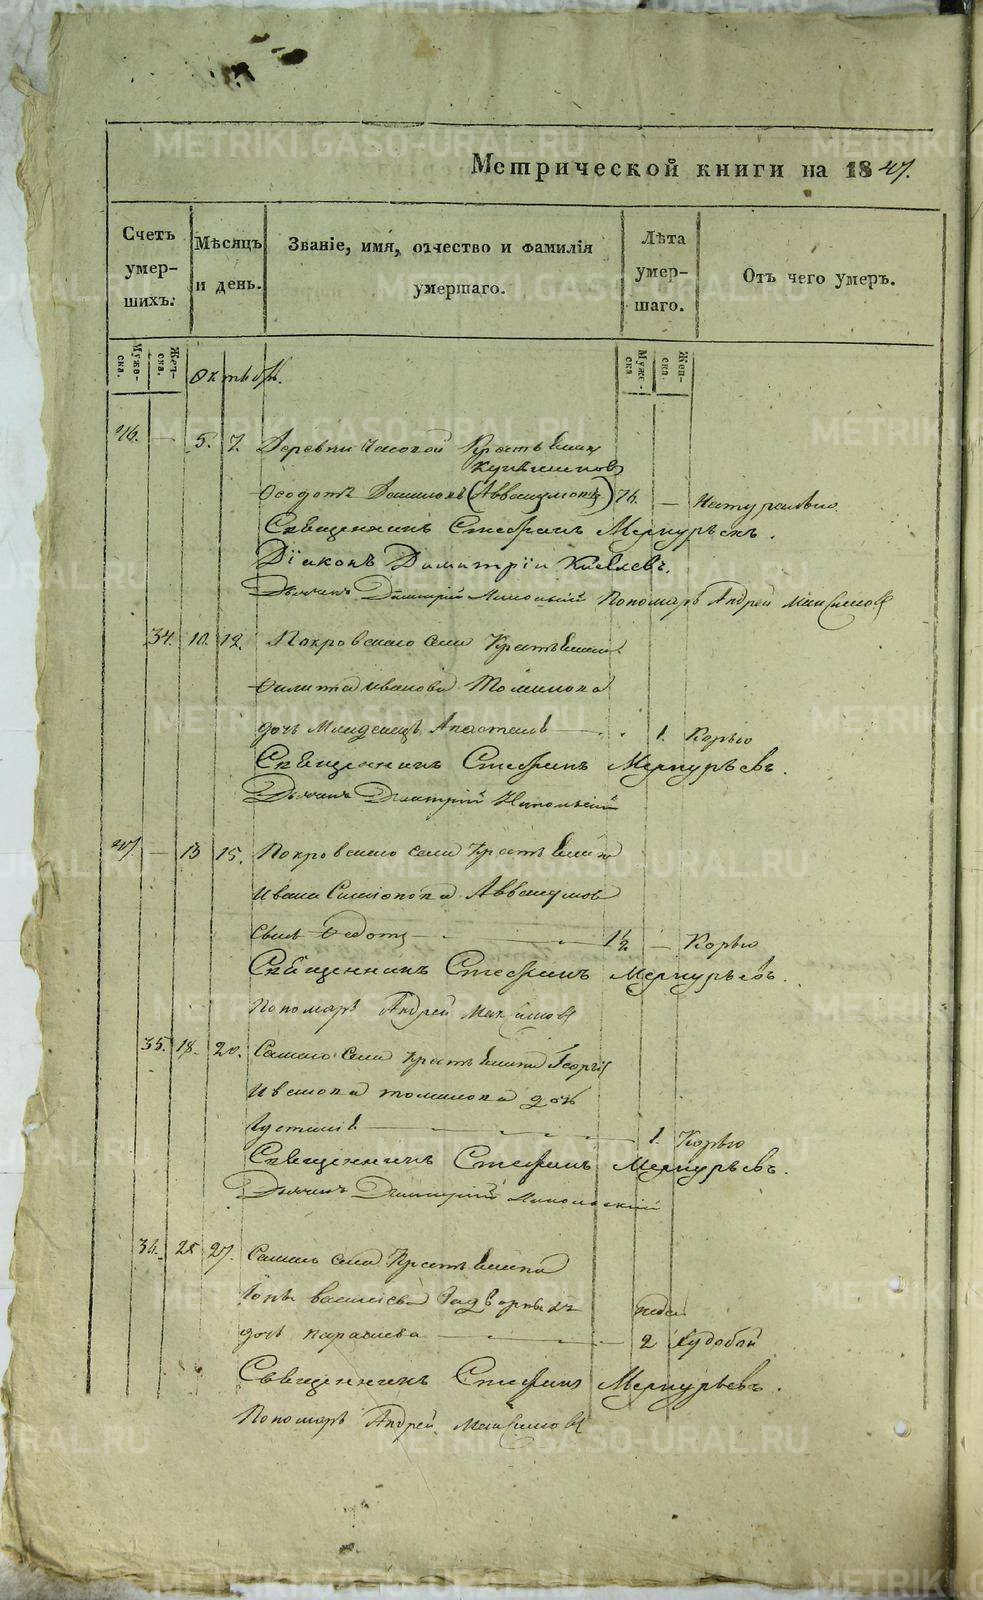 Метрической книги на 1847.
Счетъ умер-шихъ.
Мѣсяцъ и день.
Званіе, имя, отчество и фамилія умершаго.
Лѣта умер-шаго.
Отъ чего умеръ.
Муже-ска.
Жен-ска.
Муже-ска
Жен-ска.
Октябрь.
46. — 5. 7. Деревни Часовой Крестьянинъ
Ѳеодотъ (Аввакумовъ) 76. — Натурально
Священникъ Стефанъ Меркурьевъ.
Діаконъ Димитрій Киселевъ.
Дьячекъ Димитрій Никольскій Пономарь Андрей Максимовъ
34. 10. 12. Покровскаго села Крестьянина
Филипа Иванова Томилова
дочь Младенецъ Анастасія — 1. Корью
Священникъ Стефанъ Меркурьевъ.
Дьячекъ Димитрій Никольскій
47. — 13 15. Покровскаго села Крестьянина
Ивана Симіонова Аввакумова
сынъ Федотъ — 1½ — Корью
Священникъ Стефанъ Меркурьевъ.
Пономарь Андрей Максимовъ
35. 18. 20. Самаго села Крестьянина Георгія
Иванова Томилова дочь
Іустинія — 1. Корью
Священникъ Стефанъ Меркурьевъ.
Дьячекъ Димитрій Никольскій
36. 25 27. Самаго села Крестьянина
Іоны Васильева Задворныхъ недѣли
дочь Параскева — 2 Худобой
Священникъ Стефанъ Меркурьевъ.
Пономарь Андрей Максимовъ
METRIKI.GASO-URAL.RU